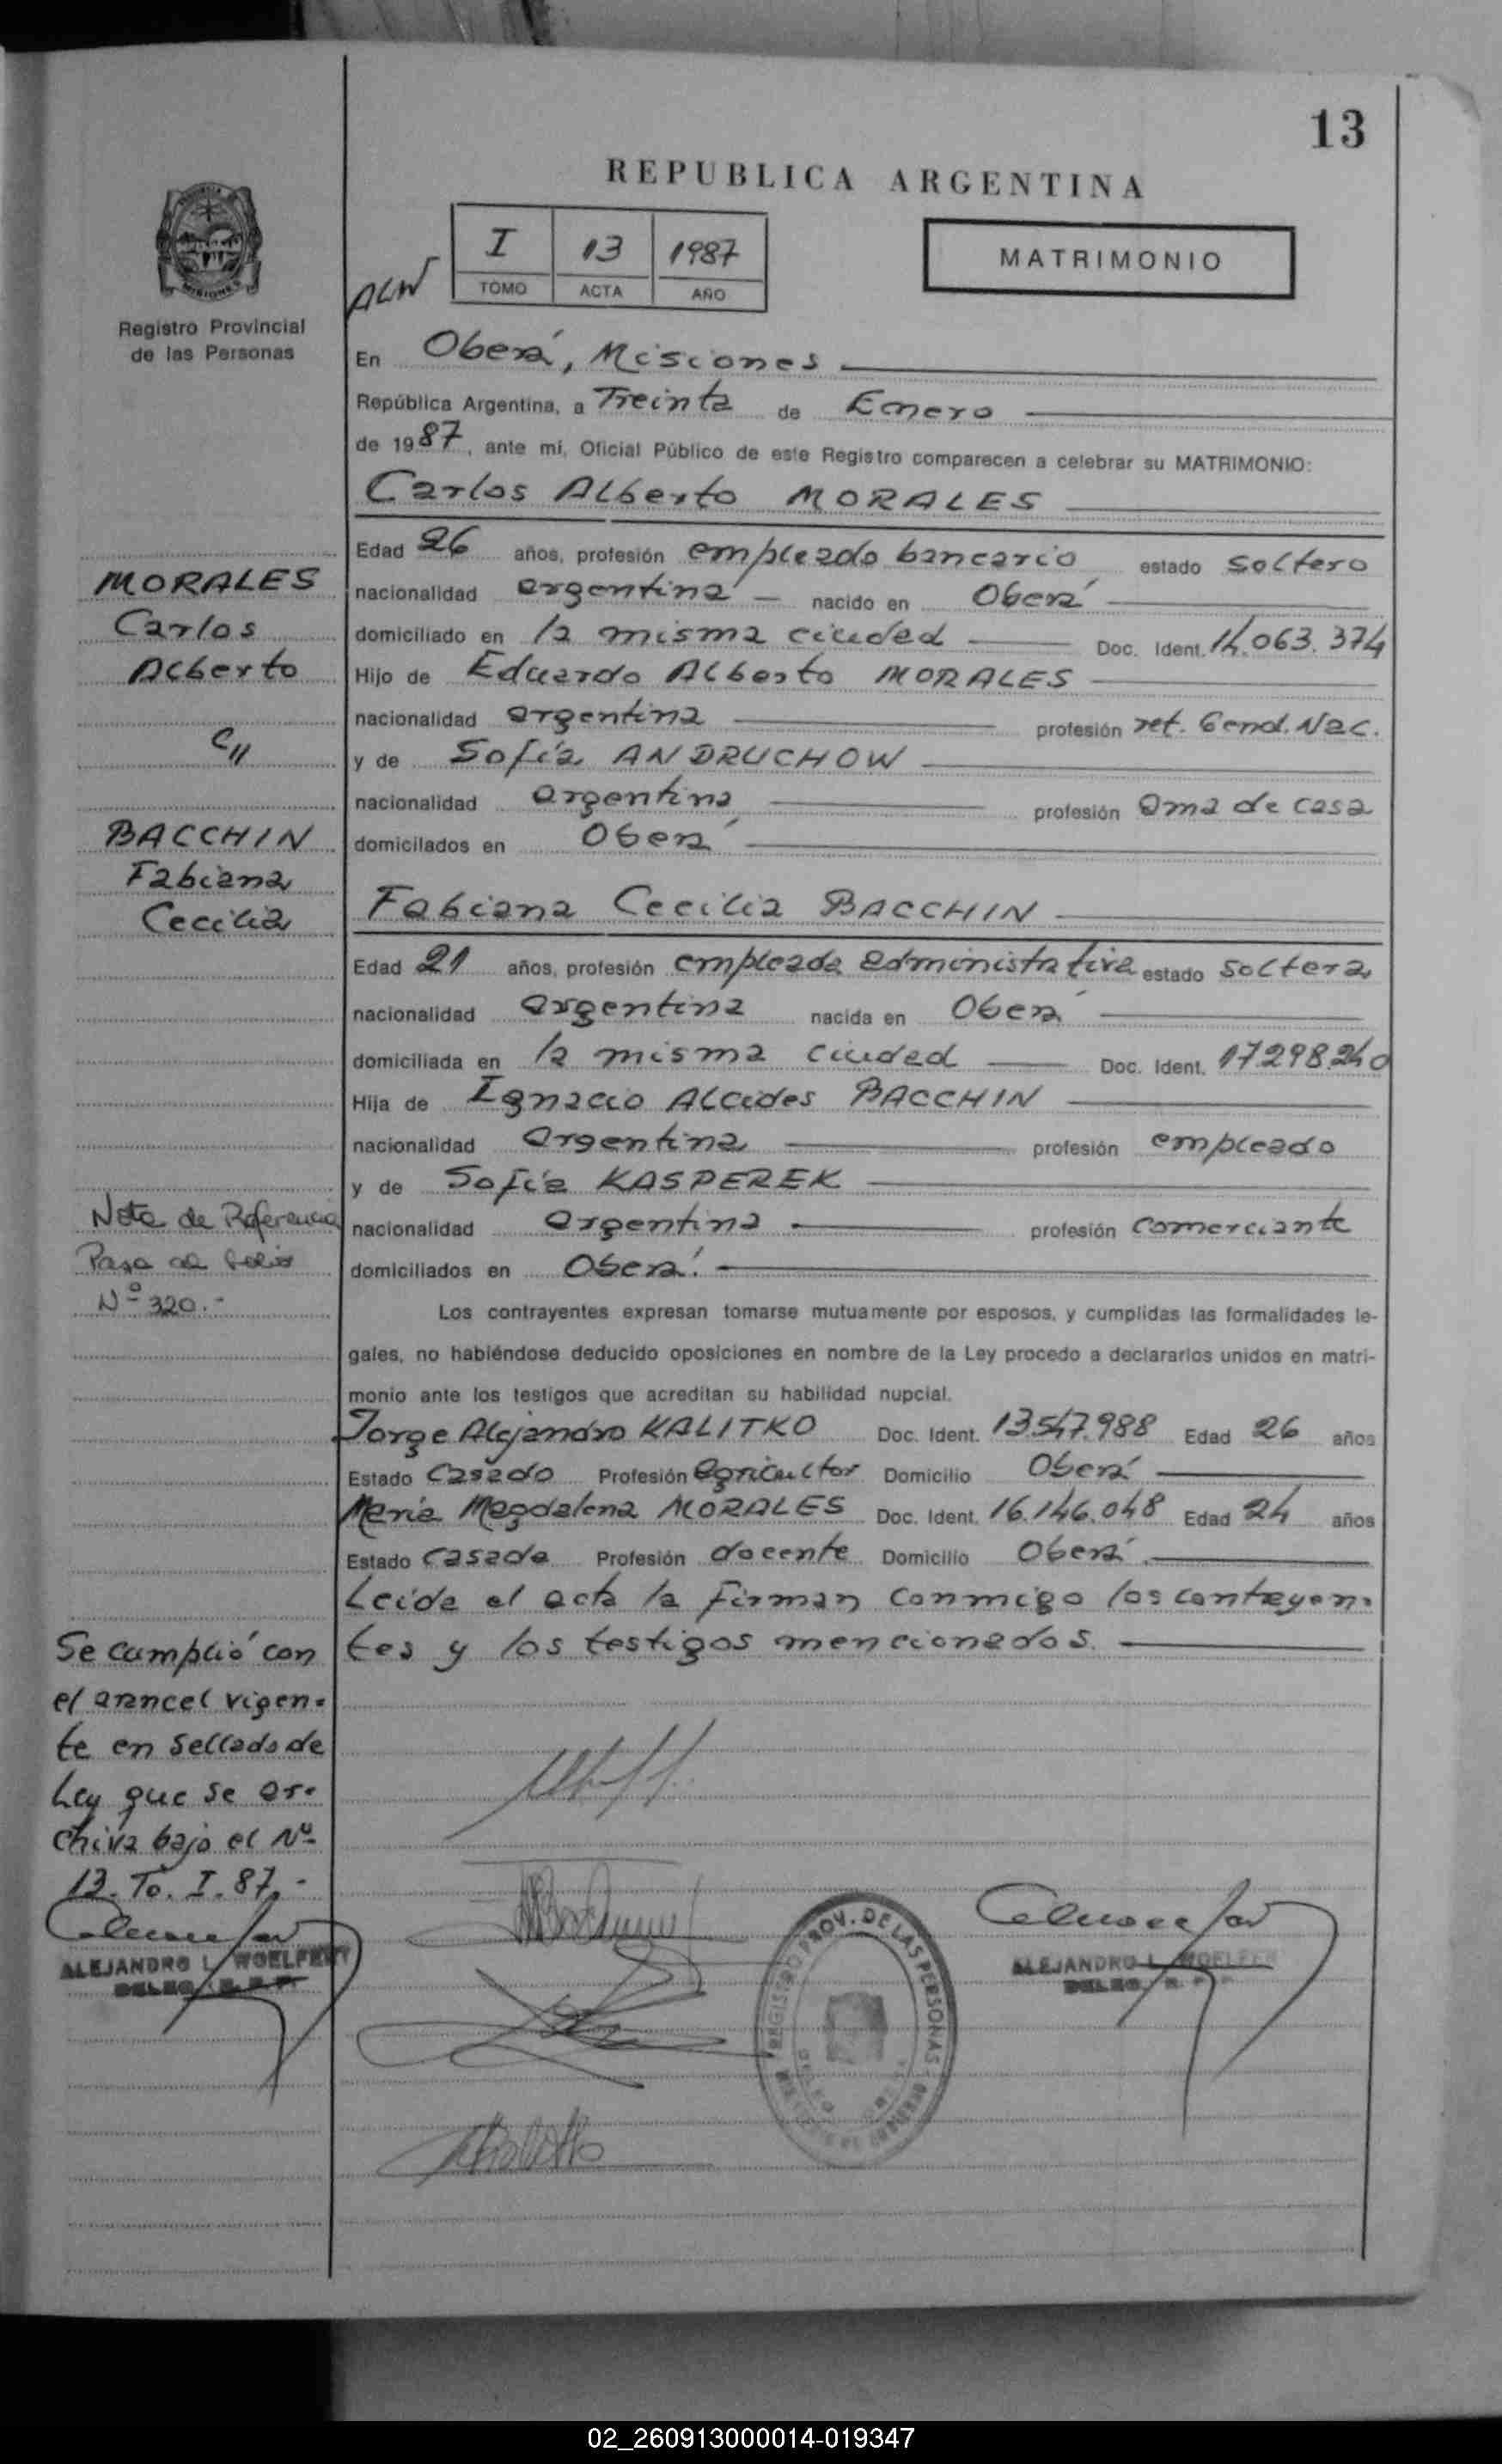 13
REPUBLICA ARGENTINA
I 13 1987
TOMO ACTA AÑO
MATRIMONIO
Registro Provincial
de las Personas
En Oberá, Misiones
República Argentina, a Treinta de Enero
de 1987, ante mí, Oficial Público de este Registro comparecen a celebrar su MATRIMONIO:
Carlos Alberto MORALES
Edad 26 años, profesión empleado bancario estado soltero
nacionalidad argentina nacido en Oberá
domiciliado en la misma ciudad Doc. Ident. 14.063.374
Hijo de Eduardo Alberto MORALES
nacionalidad argentina profesión ret. Gend. Nac.
y de Sofía ANDRUCHOW
nacionalidad argentina profesión ama de casa
domicilados en Oberá
MORALES
Carlos
Alberto
c//
BACCHIN
Fabiana
Cecilia
Fabiana Cecilia BACCHIN
Edad 21 años, profesión empleada administrativa estado soltera
nacionalidad argentina nacida en Oberá
domiciliada en la misma ciudad Doc. Ident. 17.298.240
Hija de Ignacio Alcides BACCHIN
nacionalidad argentina profesión empleado
y de Sofía KASPEREK
nacionalidad argentina profesión comerciante
domiciliados en Oberá.
Nota de Referencia
Pasa al folio
Nº 320.-
Los contrayentes expresan tomarse mutuamente por esposos, y cumplidas las formalidades le-
gales, no habiéndose deducido oposiciones en nombre de la Ley procedo a declararlos unidos en matri-
monio ante los testigos que acreditan su habilidad nupcial.
Jorge Alejandro KALITKO Doc. Ident. 13.547.988 Edad 26 años
Estado casado Profesión agricultor Domicilio Oberá
María Magdalena MORALES Doc. Ident. 16.146.048 Edad 24 años
Estado casada Profesión docente Domicilio Oberá.
Leída el acta la firman conmigo los contrayen-
tes y los testigos mencionados.
Se cumplió con
el arancel vigen-
te en sellado de
Ley que se ar-
chiva bajo el Nº
13. To. I. 87.-
ALEJANDRO L. WOELFERT
DELEG. R. P. P.
REGISTRO PROV. DE LAS PERSONAS
ALEJANDRO L. WOELFER
DELEG. R. P. P.
02_260913000014-019347